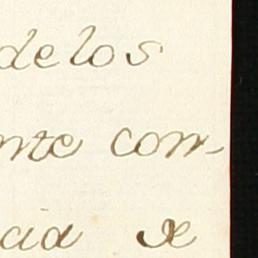 de los
nte con-
cia se